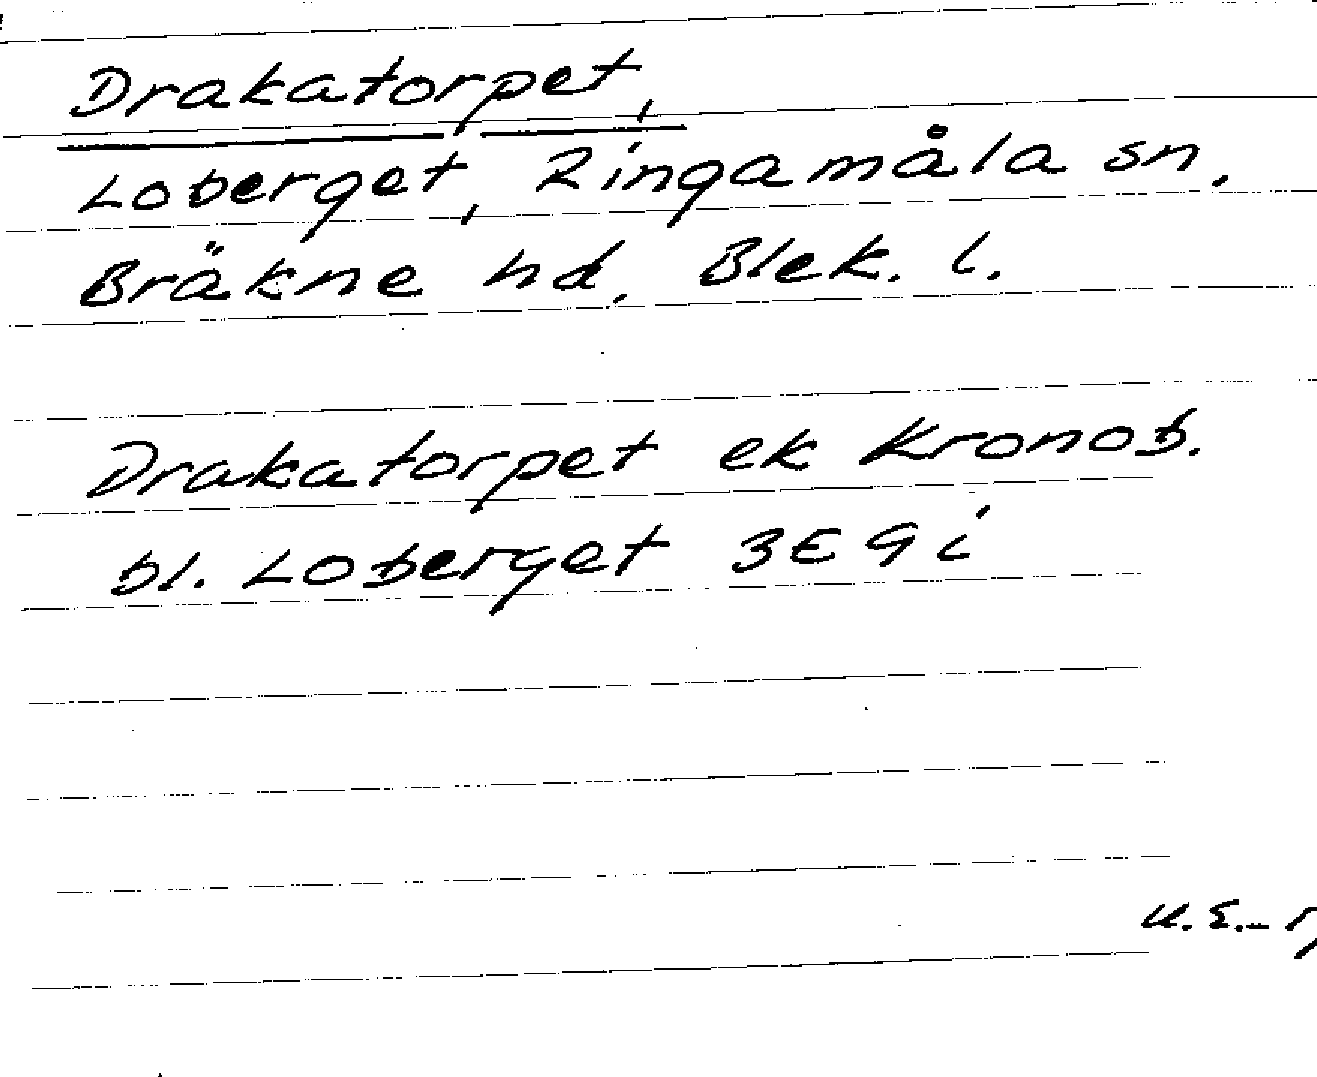 Drakatorpet,
Loberget, Ringamåla sn,
Bräkne hd, Blek. l.
Drakatorpet ek Kronob.
bl. Loberget 3E 9i